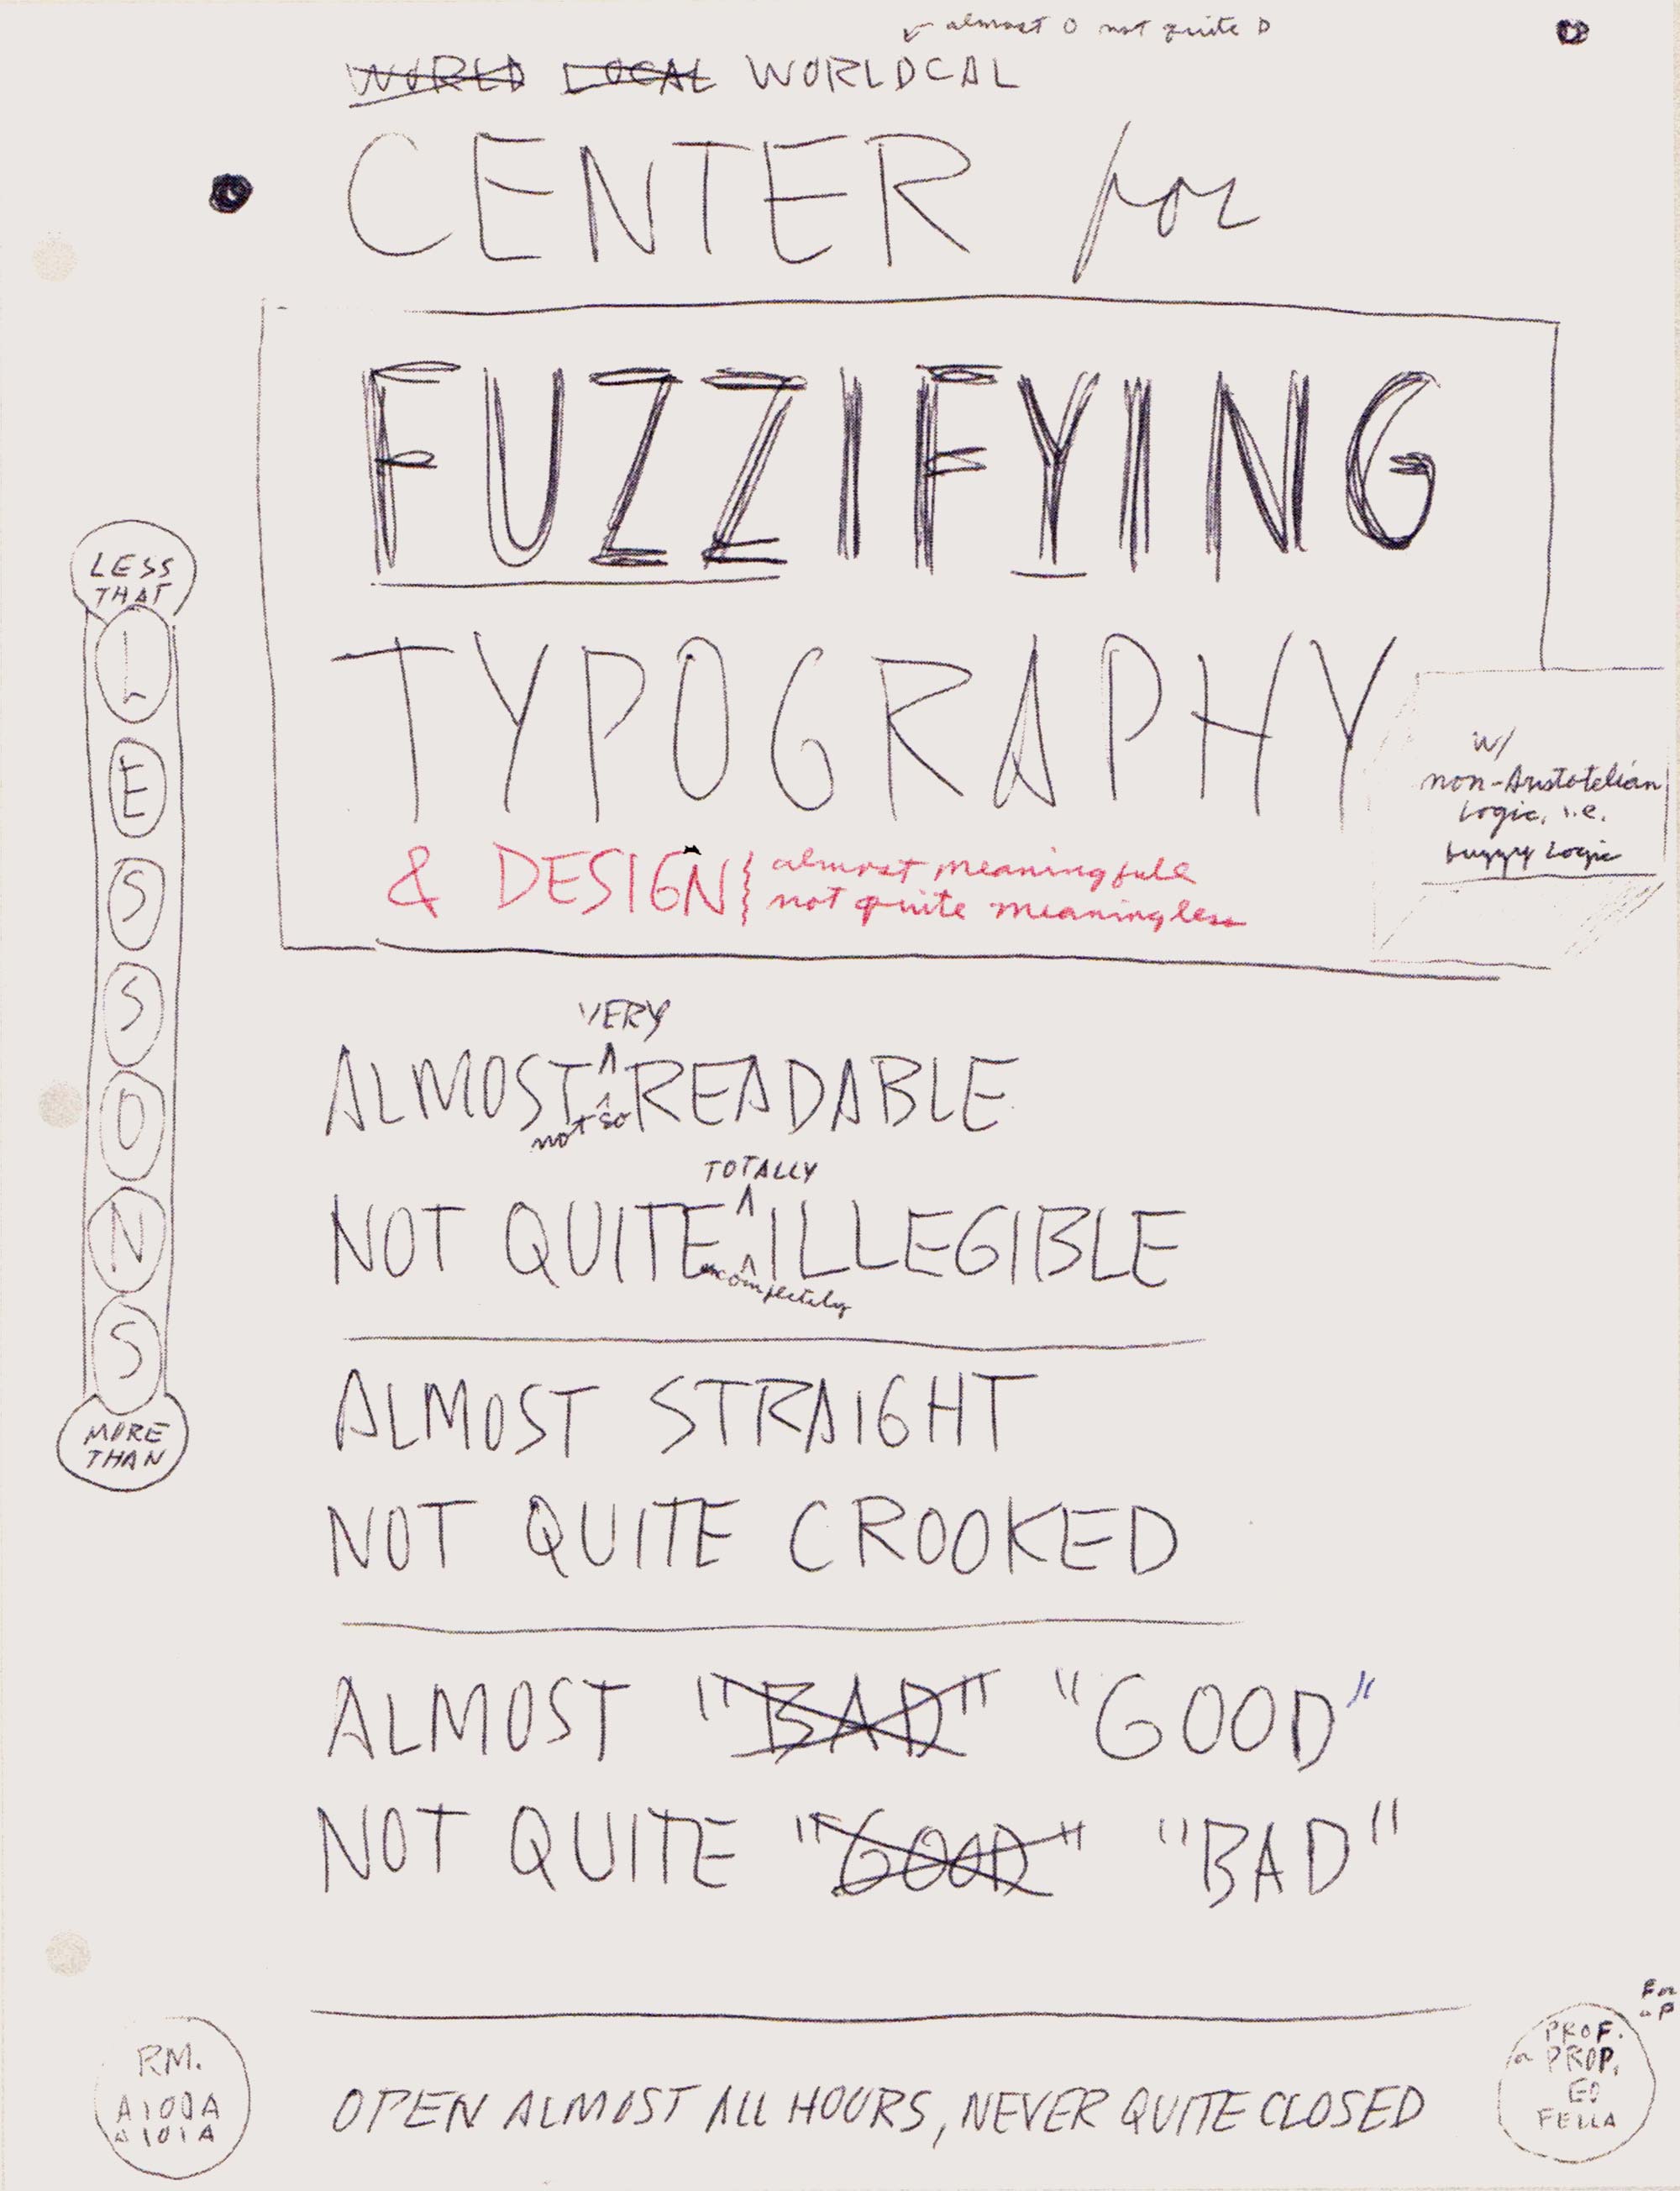 almost O not quite D
WORLD LOCAL WORLDCAL
CENTER for
FUZZIFYING
TYPOGRAPHY
w/
non-Aristotelian
Logic, i.e.
fuzzy Logic
& DESIGN
almost meaningfull
not quite meaningless
LESS
THAT
L
E
S
S
O
N
S
MORE
THAN
VERY
ALMOST READABLE
not so
TOTALLY
NOT QUITE ILLEGIBLE
ALMOST STRAIGHT
NOT QUITE CROOKED
ALMOST "BAD" "GOOD"
NOT QUITE "GOOD" "BAD"
RM.
A100A
A101A
OPEN ALMOST ALL HOURS, NEVER QUITE CLOSED
PROF.
a PROP.
ED
FELLA